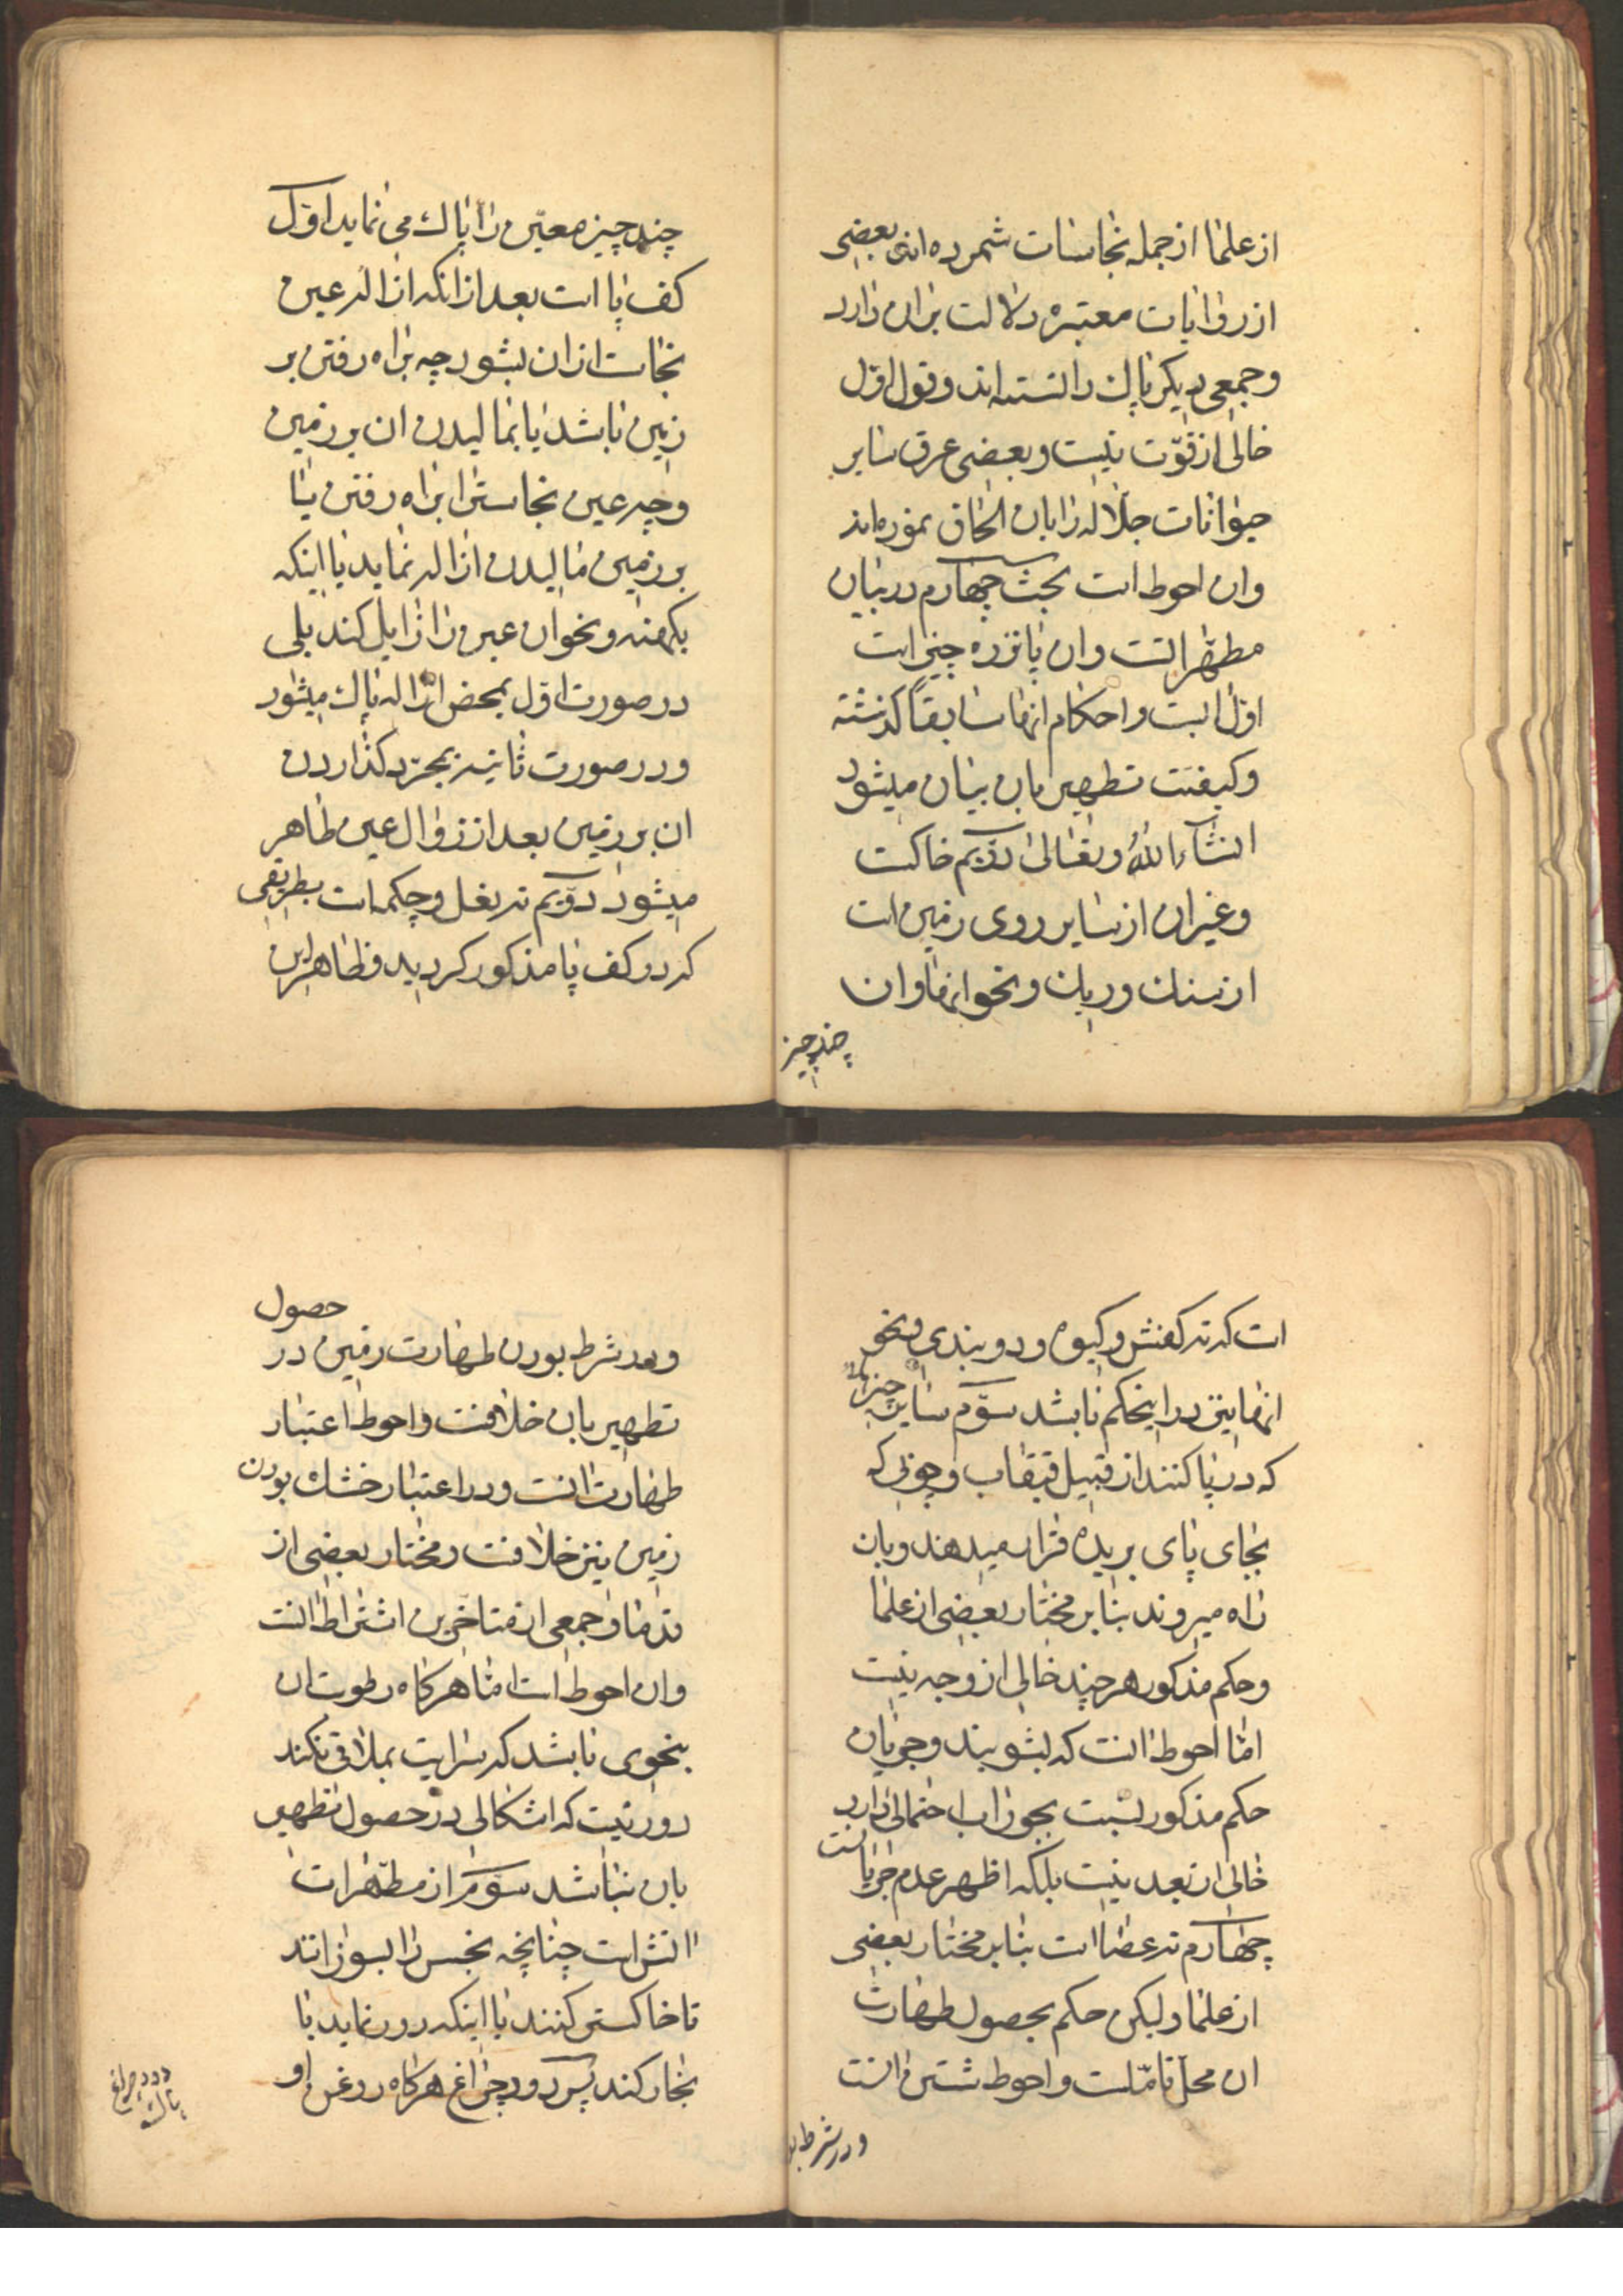 از علما از جمله نجاسات شمرده اند بعضی
از روایات معتبره دلالت بران دارد
و جمعی دیکر پاک دانسته اند و قول اوّل
خالی از قوّت نیست و بعضی عرق سایر
حیوانات جلّاله را بان الحاق نموده اند
وان احوط است بحث چهارم در بیان
مطهّراتست وان پانزده چیز است
اوّل ابست و احکام انها سابقاً کذشته
و کیفیّت تطهیر بان بیان میشود
انشاء الله تعالی دوّیم خاکست
و غیران از سایر روی زمین است
از سنک و ریک و نحو انها و ان
چند چیز
چند چیز معیّن را پاک می نماید اوّل
کف پا است بعد از انکه ازاله عین
نجاست ازان بشود چه براه رفتن بر
زمین باشد یا بمالیدن ان بر زمین
و چه عین نجاست را براه رفتن یا
بر زمین مالیدن ازاله نماید یا اینکه
بکهنه و نحو ان عین را زایل کند بلی
در صورت اوّل بمحض ازاله پاک میشود
و در صورت ثانیه بمجرّد کذاردن
ان بر زمین بعد از زوال عین طاهر
میشود دوّیم ته نعل و چکمه است بطریقی
که در کف پا مذکور کردید و ظاهر این
است که ته کفش و کیوه و دو بندی و نحو
انها نیز در اینحکم باشد سوّم سایر چیزها
که در پا کنند از قبیل قبقاب و چوبی که
بجای پای بریده قرار میدهند و بان
راه میروند بنا بر مختار بعضی از علما
و حکم مذکور هر چند خالی از وجه نیست
امّا احوط انست که بشویند و جریان
حکم مذکور نسبت بجوراب احتمالی دارد
خالی از بعد نیست بلکه اظهر عدم جریانست
چهارم ته عصا است بنا بر مختار بعضی
از علما و لیکن حکم بحصول طهارت
ان محل تامّلست و احوط شستن انست
و در شرط بو
حصول
و در شرط بودن طهارت زمین در
تطهیر بان خلافست و احوط اعتبار
طهارت انست و در اعتبار خشک بودن
زمین نیز خلافست و مختار بعضی از
قدما و جمعی از متاخّرین اشتراط انست
وان احوط است امّا هرکاه رطوبت ان
بنحوی باشد که سرایت بملاقی نکند
دور نیست که اشکالی در حصول تطهیر
بان نباشد سوّم از مطهّرات
اتش است چنانچه نجس را بسوزاند
تا خاکستر کنند یا اینکه دود نماید یا
بخار کند پس دود چراغ هرکاه روغن او
دود چراغ
پاک